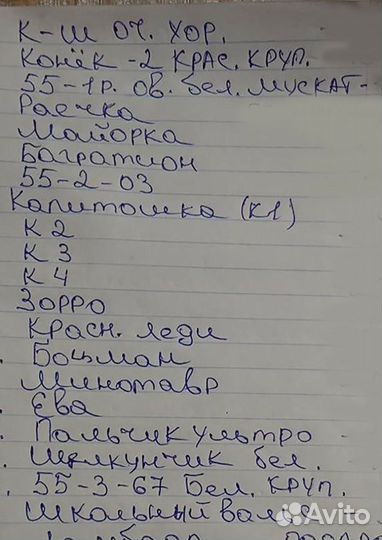 К-ш оч. хор.
Конёк -2 крас. круп.
55-1р. ов. бел. мускат-
Раечка
Майорка
Багратион
55-2-03
Капитошка (К1)
К 2
К 3
К 4
Зорро
Красн. леди
Боцман
Минотавр
Ева
Пальчик ультро
Щелкунчик бел.
55-3-67 Бел. круп.
Школьный
Avito